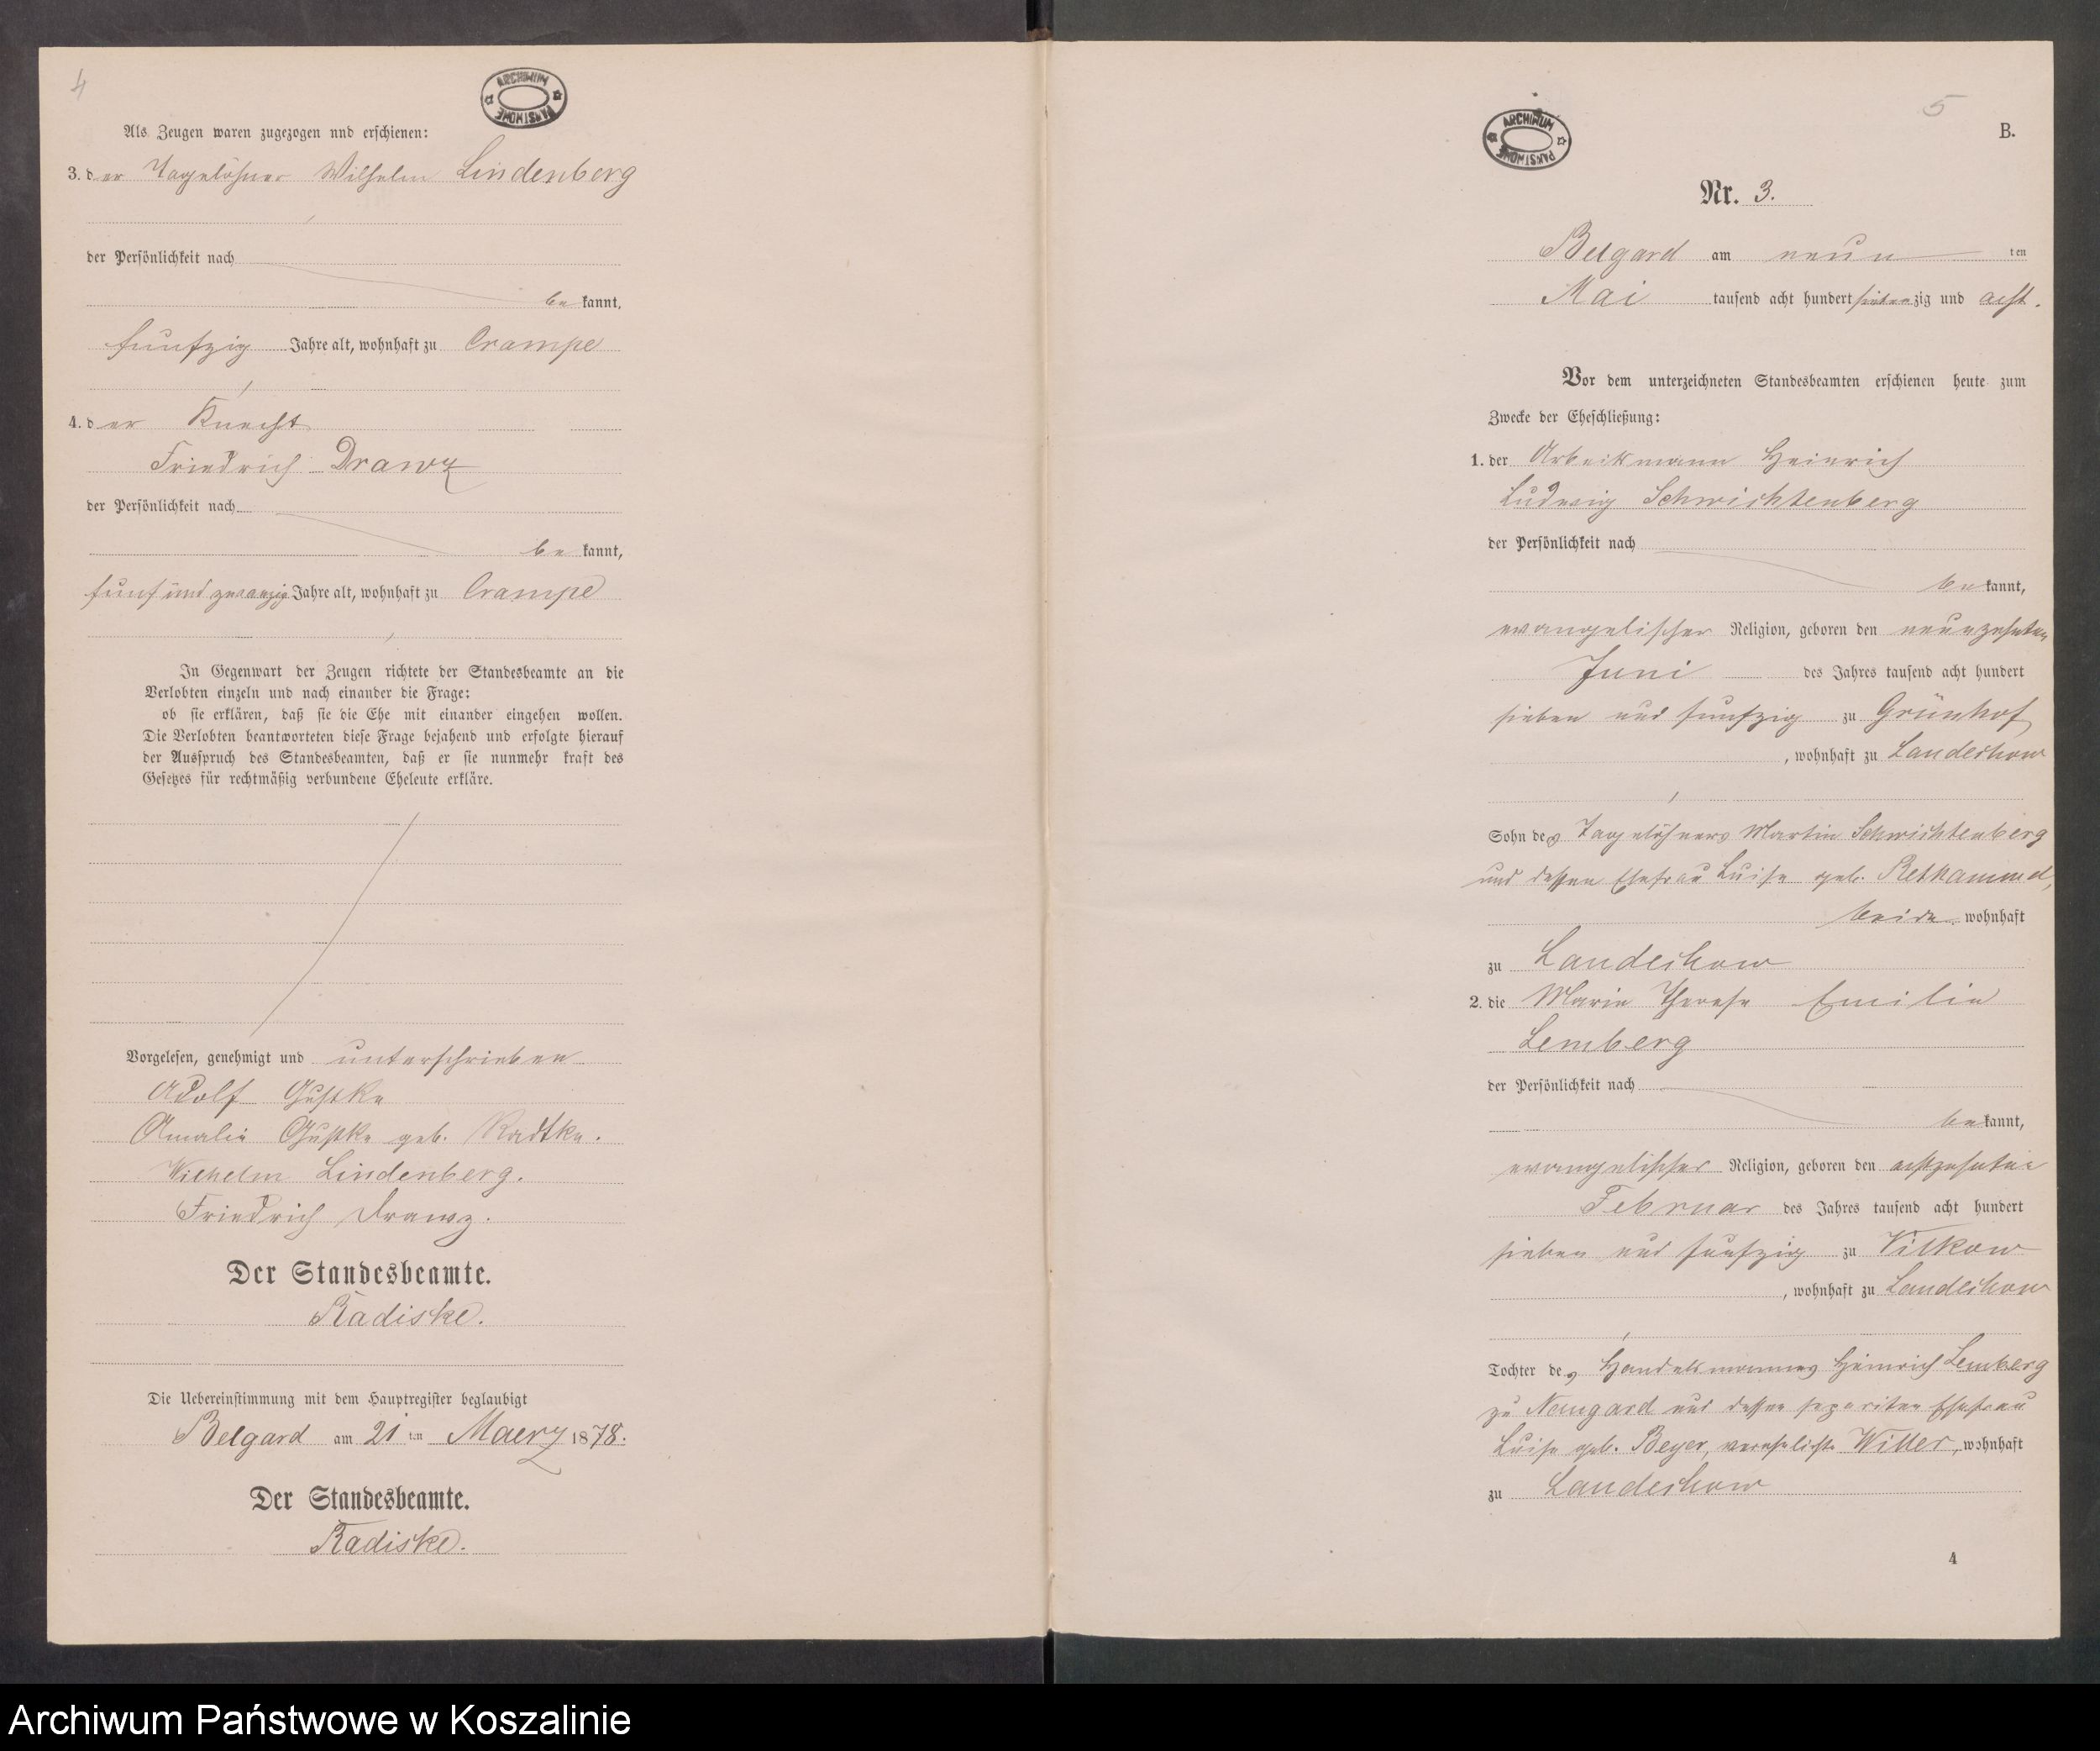 4
ARCHIWUM PAŃSTWOWE
Als Zeugen waren zugezogen und erschienen:
3. der Tagelöhner Wilhelm Lindenberg
der Persönlichkeit nach
bekannt,
funfzig Jahre alt, wohnhaft zu Crampe
4. der Knecht
Friedrich Drawz
der Persönlichkeit nach
bekannt,
funf und zwanzig Jahre alt, wohnhaft zu Crampe
In Gegenwart der Zeugen richtete der Standesbeamte an die
Verlobten einzeln und nach einander die Frage:
ob sie erklären, daß sie die Ehe mit einander eingehen wollen.
Die Verlobten beantworteten diese Frage bejahend und erfolgte hierauf
der Ausspruch des Standesbeamten, daß er sie nunmehr kraft des
Gesetzes für rechtmäßig verbundene Eheleute erkläre.
Vorgelesen, genehmigt und unterschrieben
Adolf Gustke
Amalie Gustke geb. Radtke.
Wilhelm Lindenberg.
Friedrich Drawz.
Der Standesbeamte.
Radiske.
Die Uebereinstimmung mit dem Hauptregister beglaubigt
Belgard am 21 ten Maerz 1878.
Der Standesbeamte.
Radiske.
5
ARCHIWUM PAŃSTWOWE
B.
Nr. 3.
Belgard am neun ten
Mai tausend acht hundert siebenzig und acht.
Vor dem unterzeichneten Standesbeamten erschienen heute zum
Zwecke der Eheschließung:
1. der Arbeitsmann Heinrich
Ludwig Schwichtenberg
der Persönlichkeit nach
bekannt,
evangelischer Religion, geboren den neunzehnten
Juni des Jahres tausend acht hundert
sieben und funfzig zu Grünhof
, wohnhaft zu Landechow
Sohn des Tagelöhners Martin Schwichtenberg
und dessen Ehefrau Luise geb. Rethammel,
beide wohnhaft
zu Landechow
2. die Marie Therese Emilie
Lemberg
der Persönlichkeit nach
bekannt,
evangelischer Religion, geboren den achtzehnten
Februar des Jahres tausend acht hundert
sieben und funfzig zu Vilkow
, wohnhaft zu Landechow
Tochter des Handelsmannes Heinrich Lemberg
zu Naugard und dessen separirten Ehefrau
Luise geb. Beyer, verehelicht Witter, wohnhaft
zu Landechow
4
Archiwum Państwowe w Koszalinie